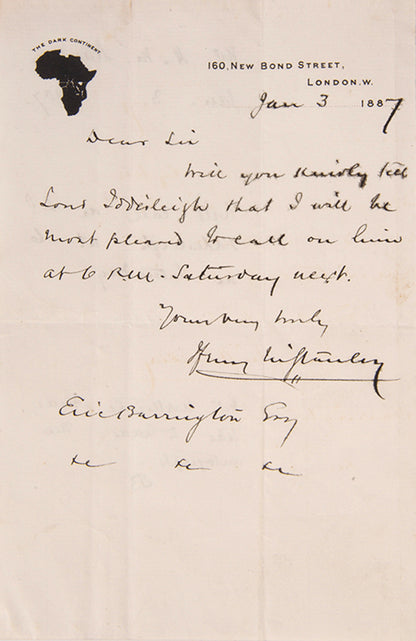 THE DARK CONTINENT
160, NEW BOND STREET,
LONDON. W.
Jan 3 1887
Dear Sir
Will you kindly tell
Lord Iddesleigh that I will be
most pleased to call on him
at 6 P.M. Saturday next.
Yours very truly
Henry M Stanley
Eric Barrington Esq
&c &c &c